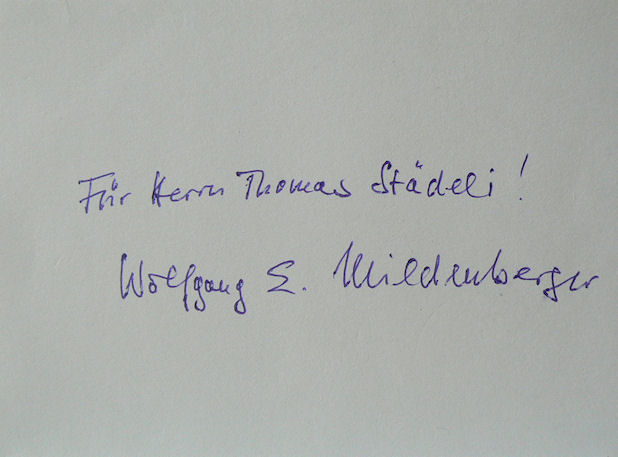 Für Herrn Thomas Städeli!
Wolfgang E. Mildenberger